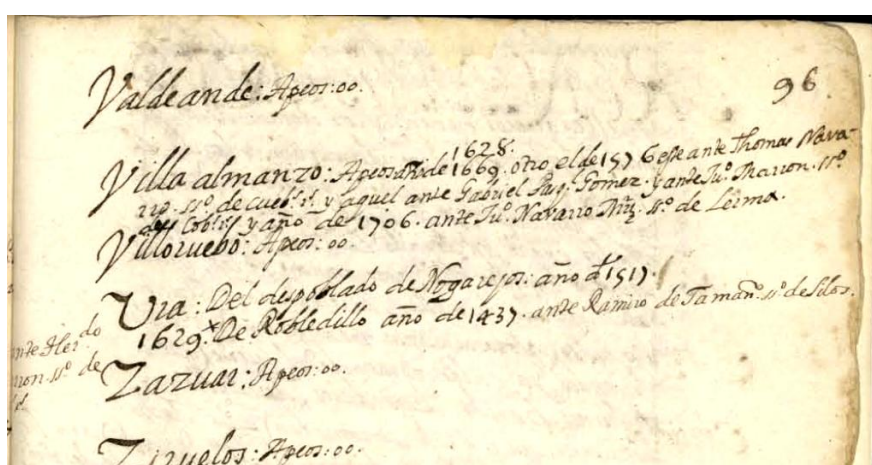 96
Valdeande: Apeos: 00.
1628.
Villa almanzo: Apeos año de 1669. otro el de 1576 esse ante Thomas Nava-
rro. ss.º de y aquel ante Gabriel Gomez. y ante Ju.º Marron. ss.º
de y año de 1706. ante Ju.º Navarro Mrz. ss.º de Lerma.
Villoruebo: Apeos: 00.
Ura: Del despoblado de Nogarejos: año d 1517.
1629.* De Robledillo año de 1437. ante Ramiro de Taman.º ss.º de Silos.
ante Her.do
rron. ss.º de
Zazuar: Apeos: 00.
Ziruelos: Apeos: 00.